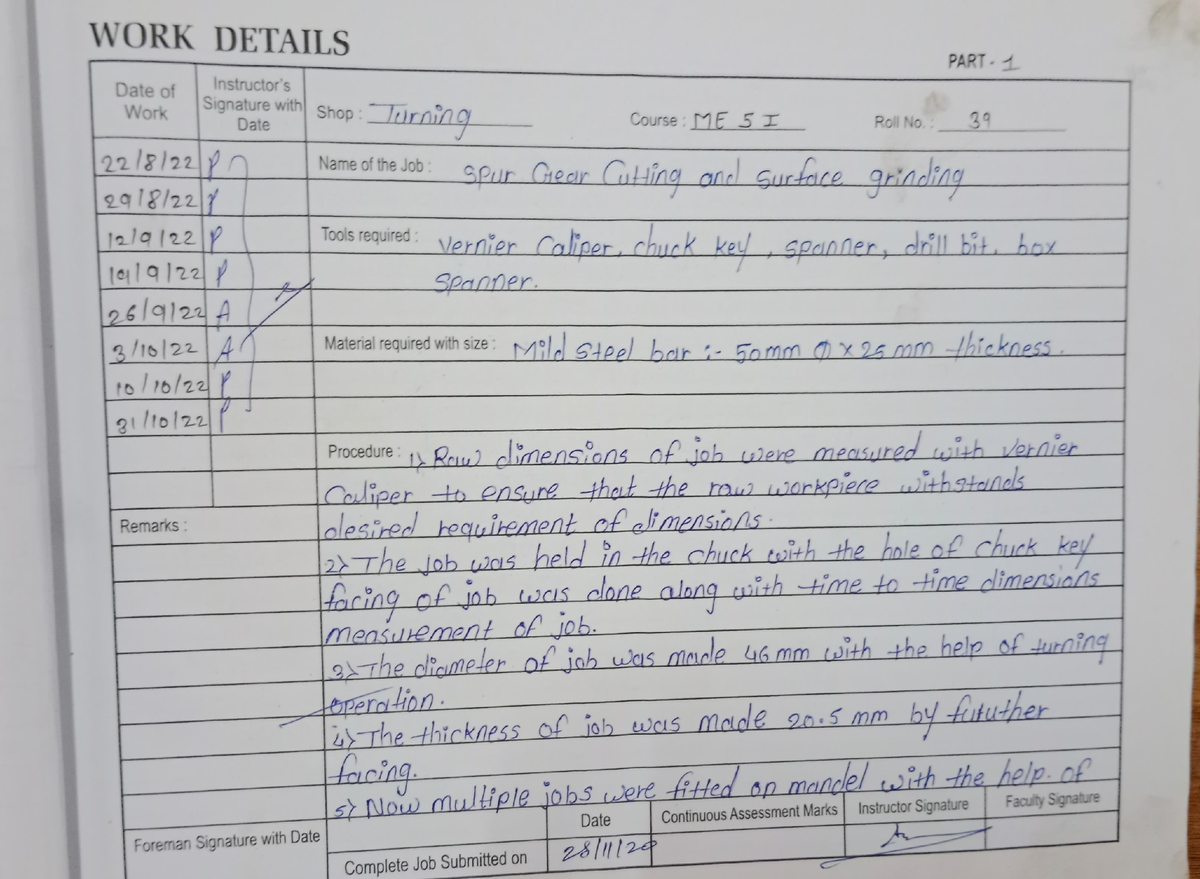 WORK DETAILS
PART - 1
Date of Work
Instructor's Signature with Date
Shop : Turning
Course : ME 5 I
Roll No. : 39
22/8/22 P
Name of the Job : Spur Gear Cutting and surface grinding
29/8/22
12/9/22 P
Tools required : Vernier Caliper, chuck key, spanner, drill bit, box
19/9/22 P
spanner.
26/9/22 A
3/10/22 A
Material required with size : Mild Steel bar :- 50mm Φ x 25 mm thickness.
10/10/22 P
31/10/22 P
Procedure : 1) Raw dimensions of job were measured with Vernier
Caliper to ensure that the raw workpiece withstands
desired requirement of dimensions.
Remarks :
2) The job was held in the chuck with the hole of chuck key
facing of job was done along with time to time dimensions
measurement of job.
3) The diameter of job was made 46 mm with the help of turning
operation.
4) The thickness of job was made 20.5 mm by fututher
facing.
5) Now multiple jobs were fitted on mandel with the help. of
Foreman Signature with Date
Date
Continuous Assessment Marks
Instructor Signature
Faculty Signature
Complete Job Submitted on
28/11/20